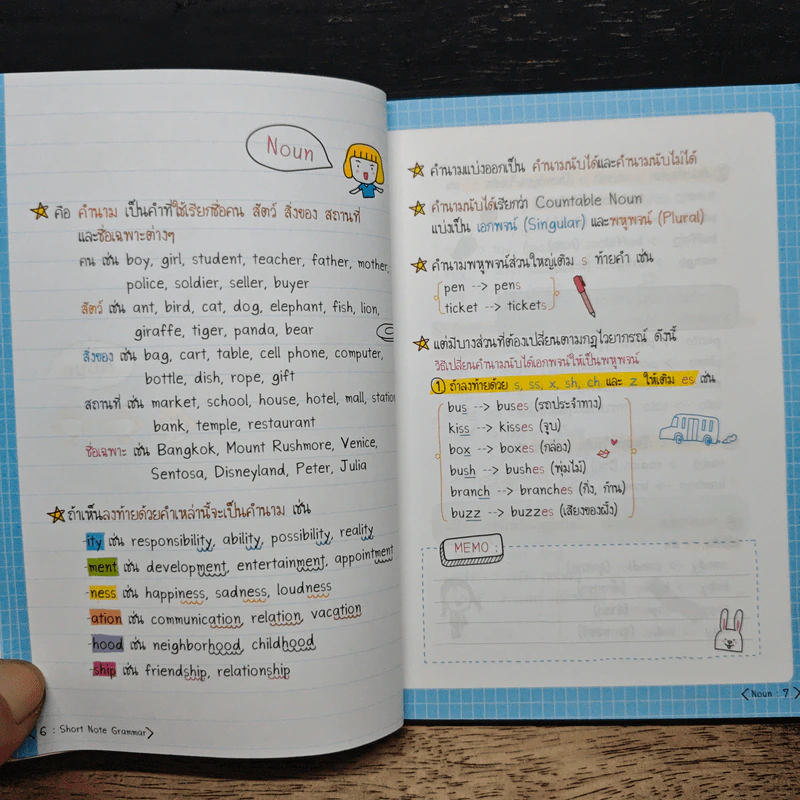 Noun
คือ คำนาม เป็นคำที่ใช้เรียกชื่อคน สัตว์ สิ่งของ สถานที่
และชื่อเฉพาะต่างๆ
คน เช่น boy, girl, student, teacher, father, mother,
police, soldier, seller, buyer
สัตว์ เช่น ant, bird, cat, dog, elephant, fish, lion,
giraffe, tiger, panda, bear
สิ่งของ เช่น bag, cart, table, cell phone, computer,
bottle, dish, rope, gift
สถานที่ เช่น market, school, house, hotel, mall, station
bank, temple, restaurant
ชื่อเฉพาะ เช่น Bangkok, Mount Rushmore, Venice,
Sentosa, Disneyland, Peter, Julia
ถ้าเห็นลงท้ายด้วยคำเหล่านี้จะเป็นคำนาม เช่น
-ity เช่น responsibility, ability, possibility, reality
-ment เช่น development, entertainment, appointment
-ness เช่น happiness, sadness, loudness
-ation เช่น communication, relation, vacation
-hood เช่น neighborhood, childhood
-ship เช่น friendship, relationship
6 : Short Note Grammar
คำนามแบ่งออกเป็น คำนามนับได้และคำนามนับไม่ได้
คำนามนับได้เรียกว่า Countable Noun
แบ่งเป็น เอกพจน์ (Singular) และพหูพจน์ (Plural)
คำนามพหูพจน์ส่วนใหญ่เติม s ท้ายคำ เช่น
pen --> pens
ticket --> tickets
แต่มีบางส่วนที่ต้องเปลี่ยนตามกฎไวยากรณ์ ดังนี้
วิธีเปลี่ยนคำนามนับได้เอกพจน์ให้เป็นพหูพจน์
1 ถ้าลงท้ายด้วย s, ss, x, sh, ch และ z ให้เติม es เช่น
bus --> buses (รถประจำทาง)
kiss --> kisses (จูบ)
box --> boxes (กล่อง)
bush --> bushes (พุ่มไม้)
branch --> branches (กิ่ง, ก้าน)
buzz --> buzzes (เสียงของผึ้ง)
MEMO :
Noun : 7